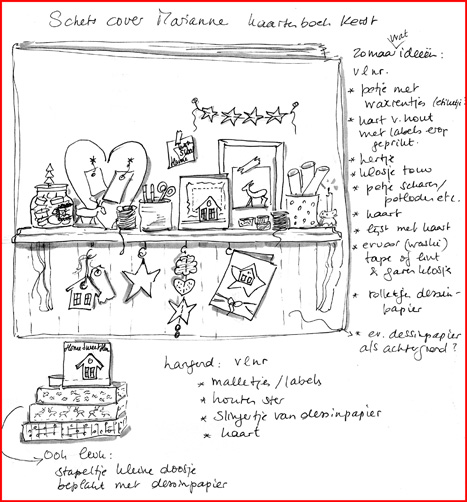 Schets cover Marianne kaartenboek Kerst
wat
Zomaar ideeën:
vlnr.
* potje met
waxinetjes (etiketje?)
* hart v. hout
met labels erop
geprikt.
* hertje
* klosje touw
* potje scharen/
potloden etc.
* kaart
* lijst met kaart
* ervoor (washi)
tape of lint
& garenklosje
* rolletje dessin-
papier
* ev. dessinpapier
als achtergrond?
Home
hangend: vlnr
* malletjes/labels
* houten ster
* Slingertje van dessinpapier
* kaart
Ook leuk:
stapeltje kleine doosjes
beplakt met dessinpapier